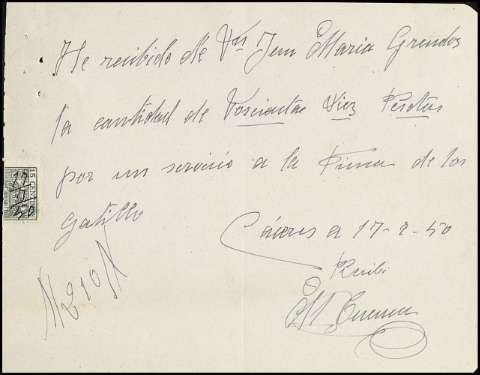 He recibido de Vn Jem Maria Grendos
la cantidad de Doscientas Diez Pesetas
por un servicio a la Finca de los
Gatillo
Cáceres a 17-2-50
Recibi
#210#
15 CNT
17
50